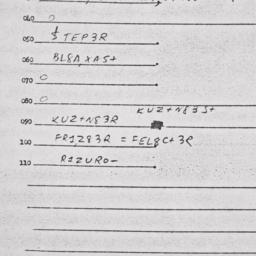 040 0
050 $TEP3R
060 BL8A,XA5+
070 0
080 0
KUZ+N835+
090 KUZ+N83R
100 FR1Z83R = FEL8C+3R
110 R1ZURO-